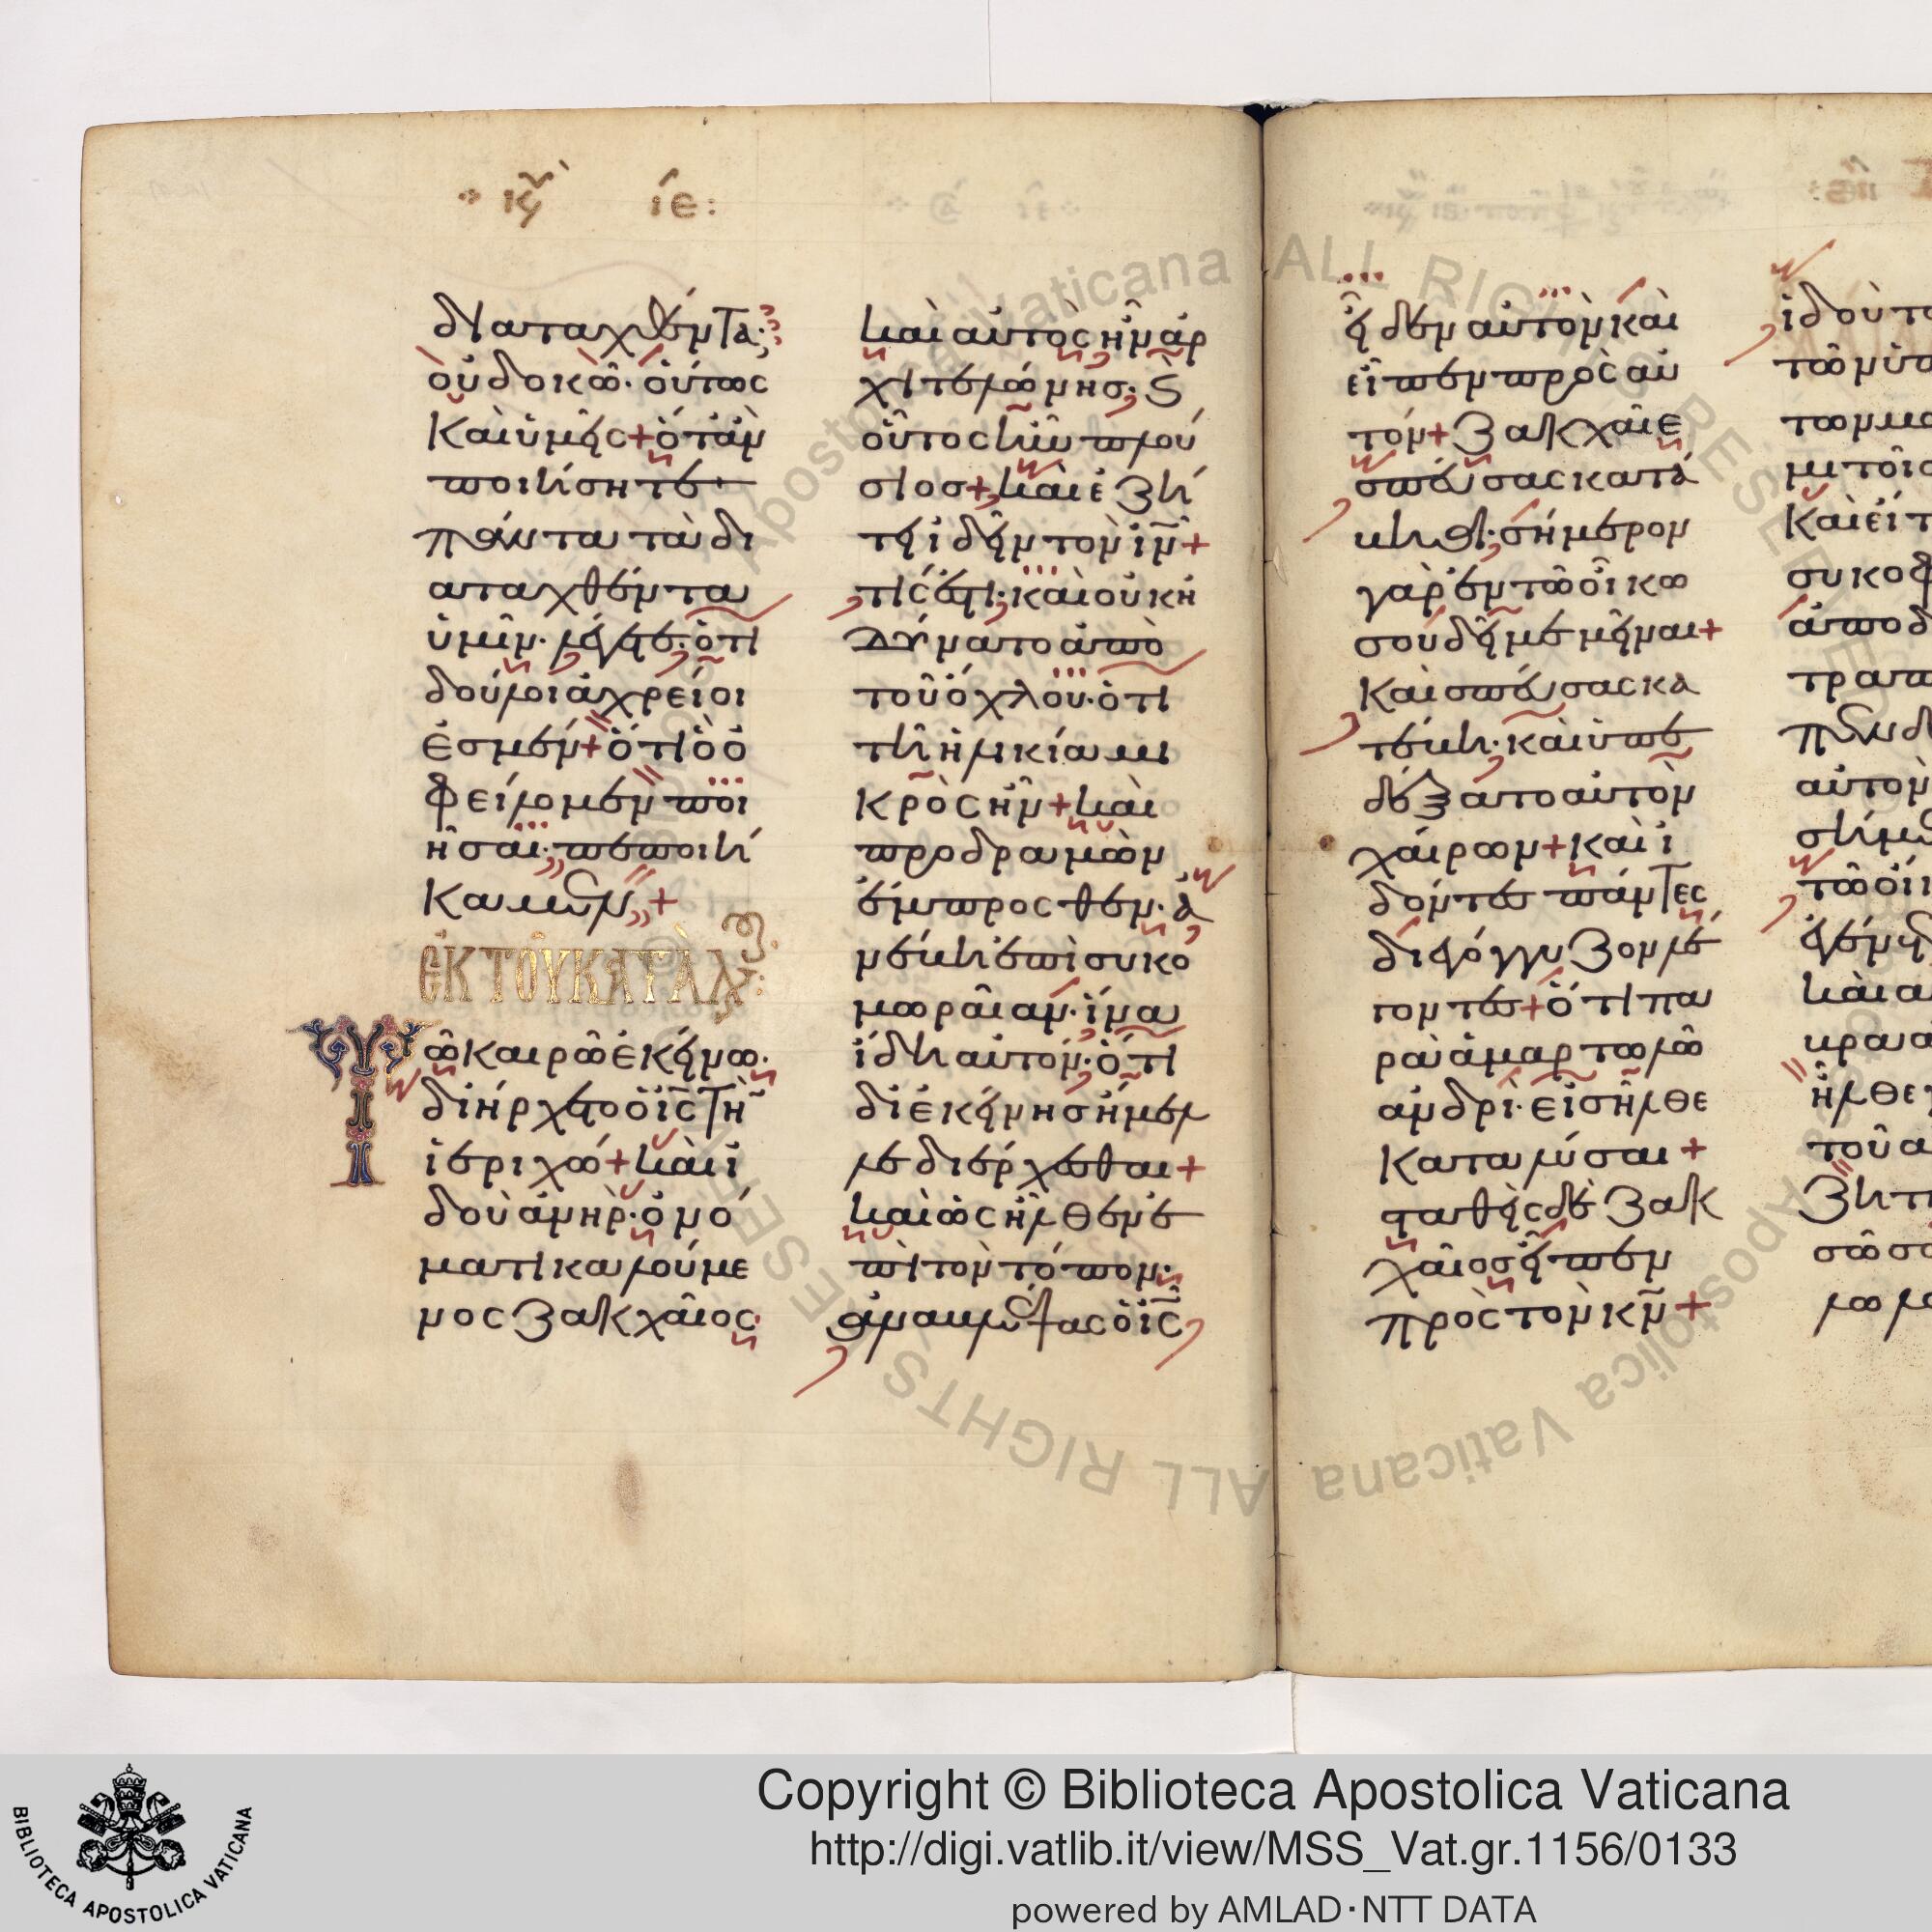 κυ ιε:
διαταχθέντα·
οὐ δοκῶ· οὕτως
καὶ ὑμεῖς + ὅταν
ποιήσητε
πάντα τὰ δι
αταχθέντα
ὑμῖν· λέγετε· ὅτι
δοῦλοι ἀχρεῖοι
ἐσμέν + ὅτι ὃ ὀ
φείλομεν ποι
ῆσαι· πεποιή
καμεν +
ἐκ τοῦ κατὰ λου:
Τῶ καιρῶ ἐκείνω·
διήρχετο ὁ ις τὴν
ἱεριχώ + καὶ ἰ
δοὺ ἀνὴρ· ὀνό
ματι καλούμε
νος ζακχαῖος·
καὶ αὐτὸς ἦν ἀρ
χιτελώνης· καὶ
οὗτος ἦν πλού
σιος + καὶ ἐζή
τει ἰδεῖν τὸν ιν +
τίς ἐστι· καὶ οὐκ ἠ
δύνατο ἀπὸ
τοῦ ὄχλου· ὅτι
τῆ ἡλικία μι
κρὸς ἦν + καὶ
προδραμὼν
ἔμπροσθεν· ἀ
νέβη ἐπὶ συκο
μωραίαν· ἵνα
ἴδη αὐτόν· ὅτι
δι ἐκείνης ἤμελ
λε διέρχεσθαι +
καὶ ὡς ἦλθεν ἐ
πὶ τὸν τόπον·
ἀναβλέψας ὁ ις
εἶδεν αὐτὸν καὶ
εἶπεν πρὸς αὐ
τόν + Ζακχαῖε
σπεύσας κατά
βηθι· σήμερον
γὰρ ἐν τῶ οἴκω
σου δεῖ με μεῖναι +
καὶ σπεύσας κα
τέβη· καὶ ὑπε
δέξατο αὐτὸν
χαίρων + καὶ ἰ
δόντες πάντες
διεγόγγυζον λέ
γοντες + ὅτι πα
ρὰ ἁμαρτωλῶ
ἀνδρὶ· εἰσῆλθε
καταλύσαι +
σταθεὶς δὲ Ζακ
χαῖος εἶπεν
πρὸς τὸν κν +
ἰδοὺ τ
τῶν ὑπ
των μο
μι τοῖς
καὶ εἴ τ
συκοφ
ἀποδ
τραπ
αὐτὸν
τῶ οἴκ
καὶ α
ἦλθε
τοῦ α
ζητ
σῶσ
λωλ
Apostolica Vaticana ALL RIGHTS RESERVED
Copyright © Biblioteca Apostolica Vaticana
http://digi.vatlib.it/view/MSS_Vat.gr.1156/0133
powered by AMLAD·NTT DATA
BIBLIOTECA APOSTOLICA VATICANA